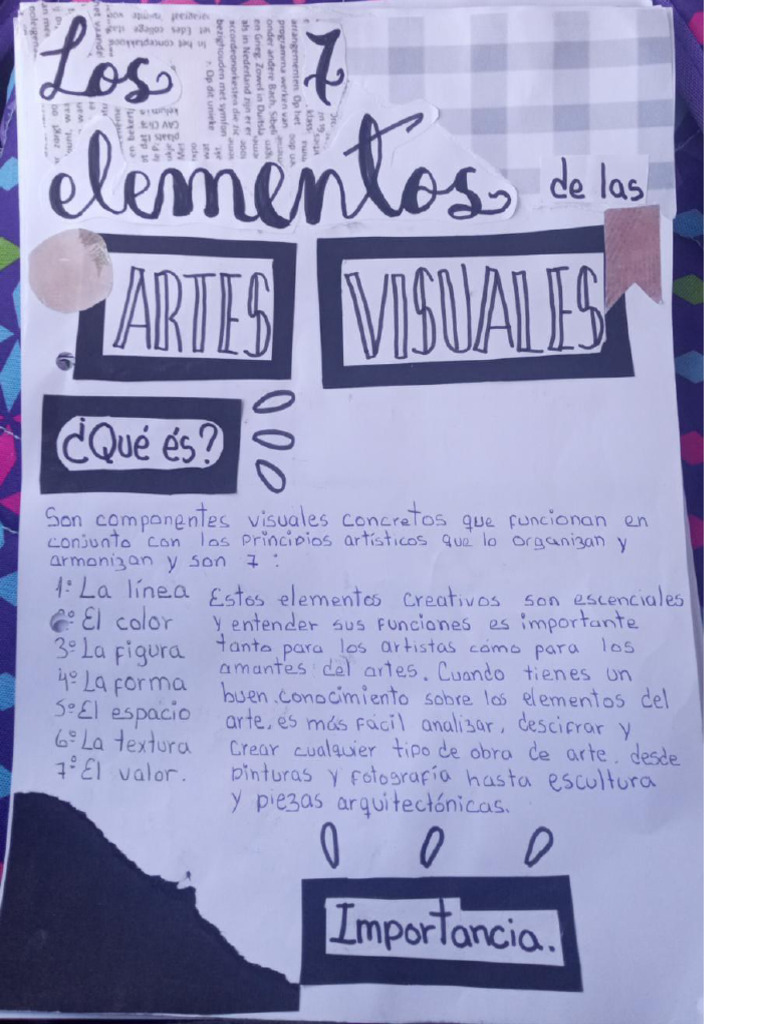 Los 7
elementos de las
ARTES VISUALES
¿Qué és?
Son componentes visuales concretos que funcionan en
conjunto con los principios artísticos que lo organizan y
armonizan y son 7 :
1º La línea
2º El color
3º La figura
4º La forma
5º El espacio
6º La textura
7º El valor.
Estos elementos creativos son escenciales
y entender sus funciones es importante
tanto para los artistas cómo para los
amantes del artes. Cuando tienes un
buen conocimiento sobre los elementos del
arte, es más fácil analizar, descifrar y
crear cualquier tipo de obra de arte, desde
pinturas y fotografía hasta escultura
y piezas arquitectónicas.
Importancia.